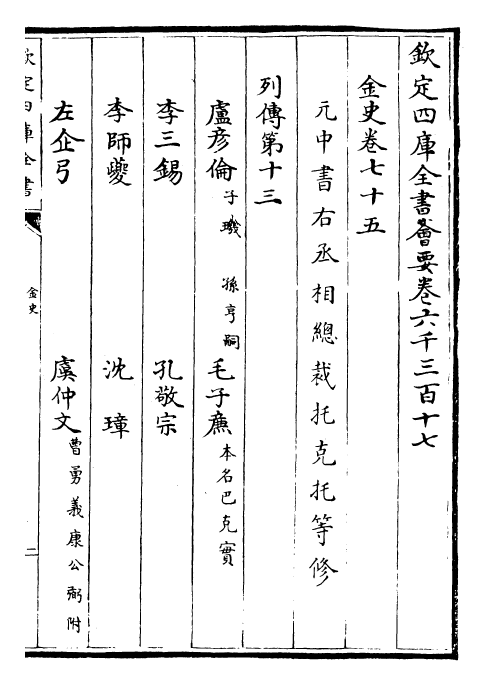 欽定四庫全書薈要卷六千三百十七
金史卷七十五
元中書右丞相總裁托克托等修
列傳第十三
盧彥倫 子璣 孫亨嗣 毛子廉 本名巴克實
李三錫 孔敬宗
李師夔 沈璋
左企弓 虞仲文 曹勇義康公弼附
欽定四庫全書
金史